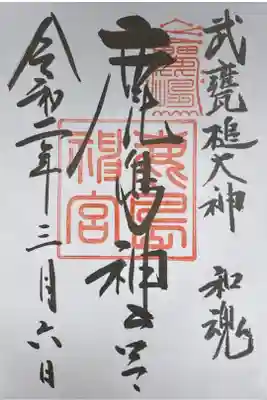 武甕槌大神 和魂
鹿島神宮
鹿島
神宮
令和二年三月六日